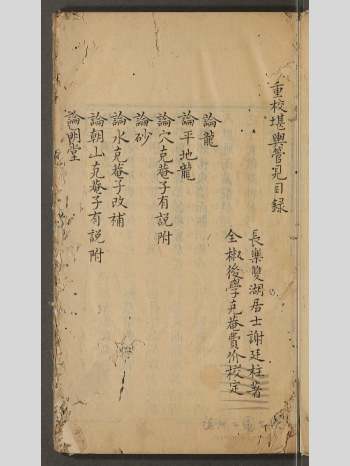 重校堪輿管孔目錄
長樂雙湖居士謝廷柱著
全椒後學克菴費价校定
論龍
論平地龍
論穴克菴子有説附
論砂
論水克菴子改補
論朝山克菴子有説附
論明堂